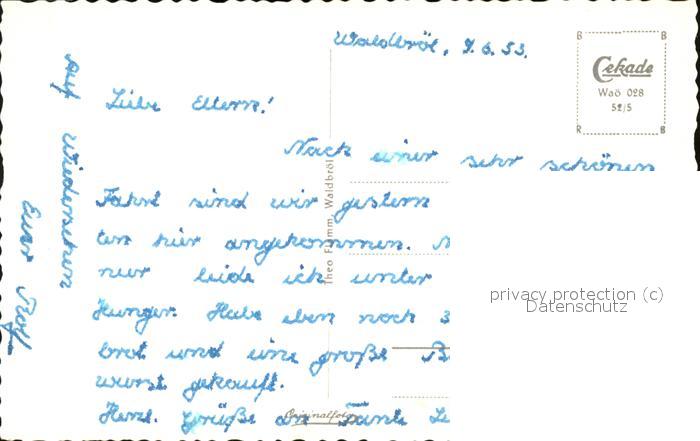 Waldbröl, 9.6.53.
Cekade
Waö 028
52/5
B B
R B
Liebe Eltern!
Nach einer sehr schönen
Fahrt sind wir gestern
ten hier angekommen.
nur leide ich unter
Hunger. Habe eben noch 3
brot und eine große
wurst gekauft.
Herzl. Grüße an Tante
auf Wiedersehen
Euer Rolf
Theo Flamm, Waldbröl
Originalfoto
privacy protection (c)
Datenschutz